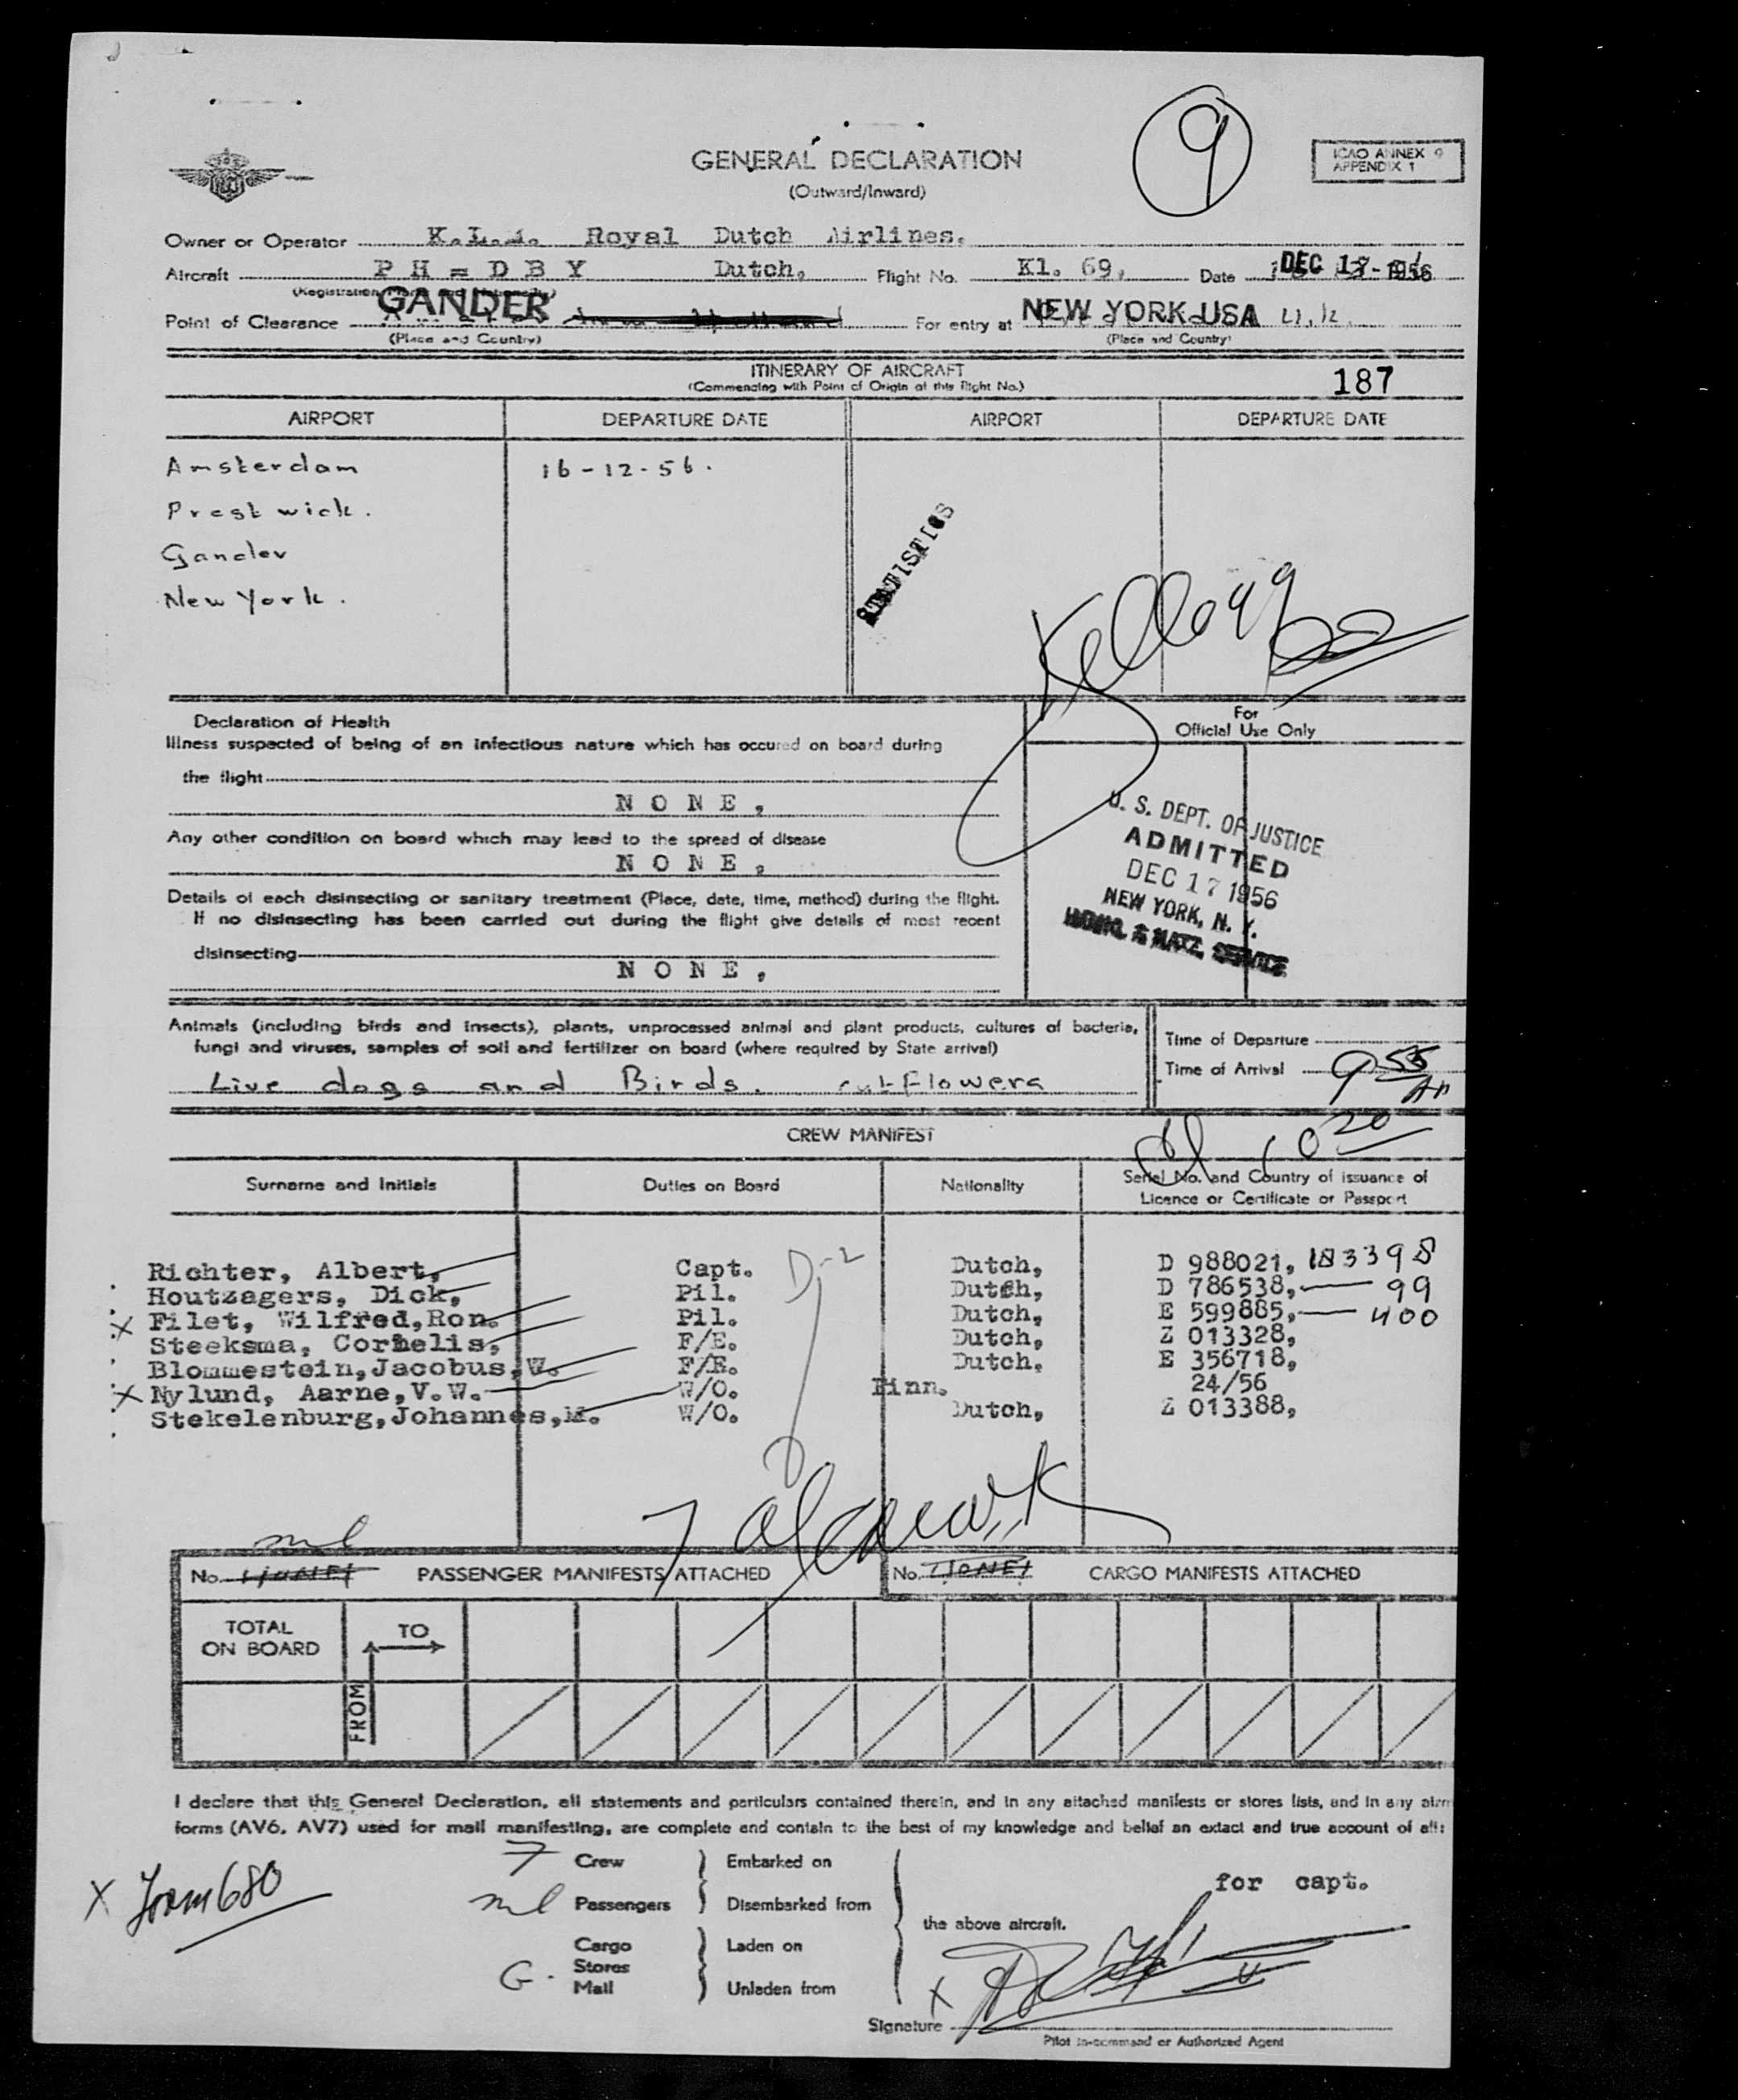 9
GENERAL DECLARATION
(Outward/Inward)
ICAO ANNEX 9
APPENDIX 1
Owner or Operator K.L.M. Royal Dutch Airlines.
Aircraft PH=DBY Dutch, Flight No. Kl. 69, Date DEC 17 1956
GANDER
Point of Clearance For entry at NEW YORK USA
(Place and Country) (Place and Country)
ITINERARY OF AIRCRAFT
(Commencing with Point of Origin of this flight No.)
187
AIRPORT DEPARTURE DATE AIRPORT DEPARTURE DATE
Amsterdam 16-12-56.
Prestwick.
Gander
New York.
STATISTICS
Kellogg
Declaration of Health
Illness suspected of being of an infectious nature which has occured on board during
the flight
NONE,
Any other condition on board which may lead to the spread of disease
NONE,
Details of each disinsecting or sanitary treatment (Place, date, time, method) during the flight.
If no disinsecting has been carried out during the flight give details of most recent
disinsecting
NONE,
For
Official Use Only
U. S. DEPT. OF JUSTICE
ADMITTED
DEC 17 1956
NEW YORK, N. Y.
IMMIG. & NATZ. SERVICE
Animals (including birds and insects), plants, unprocessed animal and plant products, cultures of bacteria,
fungi and viruses, samples of soil and fertilizer on board (where required by State arrival)
Live dogs and Birds. cut Flowers
Time of Departure
Time of Arrival 9 55
10 20
CREW MANIFEST
Surname and Initials Duties on Board Nationality Serial No. and Country of issuance of
Licence or Certificate or Passport
Richter, Albert, Capt. Dutch, D 988021, 183398
Houtzagers, Dick, Pil. Dutch, D 786538, 99
X Filet, Wilfred,Ron. Pil. Dutch, E 599885, 400
Steeksma, Cornelis, F/E. Dutch, Z 013328,
Blommestein,Jacobus,W. F/E. Dutch, E 356718,
X Nylund, Aarne,V.W. W/O. Finn. 24/56
Stekelenburg,Johannes,M. W/O. Dutch, Z 013388,
D-2
nil
No. PASSENGER MANIFESTS ATTACHED No. CARGO MANIFESTS ATTACHED
TOTAL
ON BOARD
TO
FROM
I declare that this General Declaration, all statements and particulars contained therein, and in any attached manifests or stores lists, and in any
forms (AV6, AV7) used for mail manifesting, are complete and contain to the best of my knowledge and belief an extact and true account of all:
7 Crew Embarked on
nil Passengers Disembarked from
the above aircraft.
Cargo Laden on
Stores
G. Mail Unladen from
for capt.
X Form 680
X
Signature
Pilot in-command or Authorized Agent